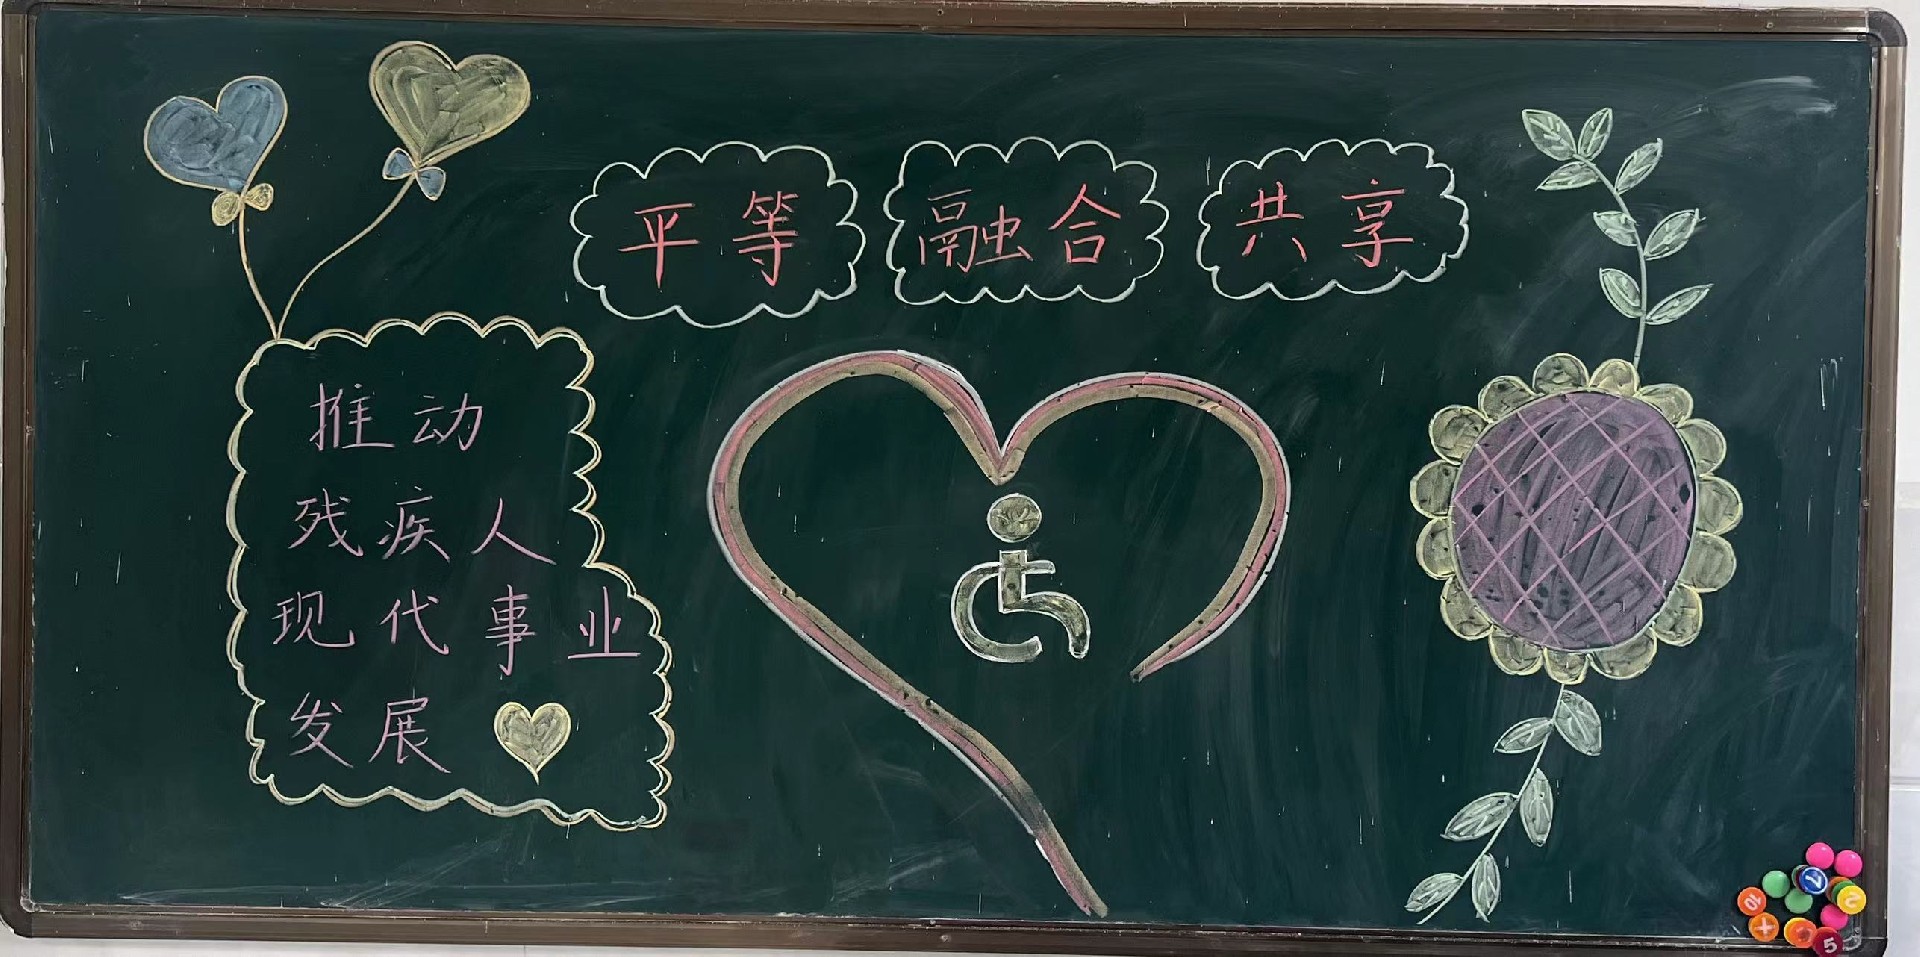 平等 融合 共享
推动
残疾人
现代事业
发展
10
7
2
+
5